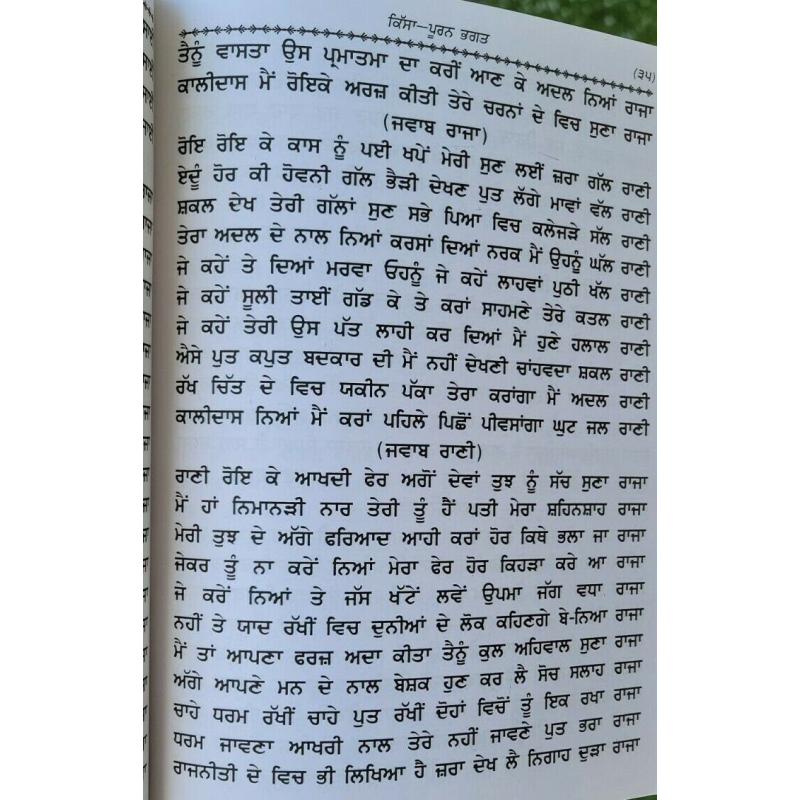 ਕਿੱਸਾ—ਪੂਰਨ ਭਗਤ
(੩੫)
ਤੈਨੂੰ ਵਾਸਤਾ ਉਸ ਪ੍ਰਮਾਤਮਾ ਦਾ ਕਰੀਂ ਆਣ ਕੇ ਅਦਲ ਨਿਆਂ ਰਾਜਾ
ਕਾਲੀਦਾਸ ਮੈਂ ਰੋਇਕੇ ਅਰਜ਼ ਕੀਤੀ ਤੇਰੇ ਚਰਨਾਂ ਦੇ ਵਿਚ ਸੁਣਾ ਰਾਜਾ
(ਜਵਾਬ ਰਾਜਾ)
ਰੋਇ ਰੋਇ ਕੇ ਕਾਸ ਨੂੰ ਪਈ ਖਪੇਂ ਮੇਰੀ ਸੁਣ ਲਈਂ ਜ਼ਰਾ ਗੱਲ ਰਾਣੀ
ਏਦੂੰ ਹੋਰ ਕੀ ਹੋਵਨੀ ਗੱਲ ਭੈੜੀ ਦੇਖਣ ਪੁਤ ਲੱਗੇ ਮਾਵਾਂ ਵੱਲ ਰਾਣੀ
ਸ਼ਕਲ ਦੇਖ ਤੇਰੀ ਗੱਲਾਂ ਸੁਣ ਸਭੇ ਪਿਆ ਵਿਚ ਕਲੇਜੜੇ ਸੱਲ ਰਾਣੀ
ਤੇਰਾ ਅਦਲ ਦੇ ਨਾਲ ਨਿਆਂ ਕਰਸਾਂ ਦਿਆਂ ਨਰਕ ਮੈਂ ਉਹਨੂੰ ਘੱਲ ਰਾਣੀ
ਜੇ ਕਹੇਂ ਤੇ ਦਿਆਂ ਮਰਵਾ ਓਹਨੂੰ ਜੇ ਕਹੇਂ ਲਾਹਵਾਂ ਪੁਠੀ ਖੱਲ ਰਾਣੀ
ਜੇ ਕਹੇਂ ਸੂਲੀ ਤਾਈਂ ਗੱਡ ਕੇ ਤੇ ਕਰਾਂ ਸਾਹਮਣੇ ਤੇਰੇ ਕਤਲ ਰਾਣੀ
ਜੇ ਕਹੇਂ ਤੇਰੀ ਉਸ ਪੱਤ ਲਾਹੀ ਕਰ ਦਿਆਂ ਮੈਂ ਹੁਣੇ ਹਲਾਲ ਰਾਣੀ
ਐਸੇ ਪੁਤ ਕਪੁਤ ਬਦਕਾਰ ਦੀ ਮੈਂ ਨਹੀਂ ਦੇਖਣੀ ਚਾਂਹਵਦਾ ਸ਼ਕਲ ਰਾਣੀ
ਰੱਖ ਚਿੱਤ ਦੇ ਵਿਚ ਯਕੀਨ ਪੱਕਾ ਤੇਰਾ ਕਰਾਂਗਾ ਮੈਂ ਅਦਲ ਰਾਣੀ
ਕਾਲੀਦਾਸ ਨਿਆਂ ਮੈਂ ਕਰਾਂ ਪਹਿਲੇ ਪਿਛੋਂ ਪੀਵਸਾਂਗਾ ਘੁਟ ਜਲ ਰਾਣੀ
(ਜਵਾਬ ਰਾਣੀ)
ਰਾਣੀ ਰੋਇ ਕੇ ਆਖਦੀ ਫੇਰ ਅਗੋਂ ਦੇਵਾਂ ਤੁਝ ਨੂੰ ਸੱਚ ਸੁਣਾ ਰਾਜਾ
ਮੈਂ ਹਾਂ ਨਿਮਾਨੜੀ ਨਾਰ ਤੇਰੀ ਤੂੰ ਹੈਂ ਪਤੀ ਮੇਰਾ ਸ਼ਹਿਨਸ਼ਾਹ ਰਾਜਾ
ਮੇਰੀ ਤੁਝ ਦੇ ਅੱਗੇ ਫਰਿਆਦ ਆਹੀ ਕਰਾਂ ਹੋਰ ਕਿਥੇ ਭਲਾ ਜਾ ਰਾਜਾ
ਜੇਕਰ ਤੂੰ ਨਾ ਕਰੇਂ ਨਿਆਂ ਮੇਰਾ ਫੇਰ ਹੋਰ ਕਿਹੜਾ ਕਰੇ ਆ ਰਾਜਾ
ਜੇ ਕਰੇਂ ਨਿਆਂ ਤੇ ਜੱਸ ਖੱਟੇਂ ਲਵੇਂ ਉਪਮਾ ਜੱਗ ਵਧਾ ਰਾਜਾ
ਨਹੀਂ ਤੇ ਯਾਦ ਰੱਖੀਂ ਵਿਚ ਦੁਨੀਆਂ ਦੇ ਲੋਕ ਕਹਿਣਗੇ ਬੇ-ਨਿਆ ਰਾਜਾ
ਮੈਂ ਤਾਂ ਆਪਣਾ ਫਰਜ਼ ਅਦਾ ਕੀਤਾ ਤੈਨੂੰ ਕੁਲ ਅਹਿਵਾਲ ਸੁਣਾ ਰਾਜਾ
ਅੱਗੇ ਆਪਣੇ ਮਨ ਦੇ ਨਾਲ ਬੇਸ਼ਕ ਹੁਣ ਕਰ ਲੈ ਸੋਚ ਸਲਾਹ ਰਾਜਾ
ਚਾਹੇ ਧਰਮ ਰੱਖੀਂ ਚਾਹੇ ਪੁਤ ਰੱਖੀਂ ਦੋਹਾਂ ਵਿਚੋਂ ਤੂੰ ਇਕ ਰਖਾ ਰਾਜਾ
ਧਰਮ ਜਾਵਣਾ ਆਖਰੀ ਨਾਲ ਤੇਰੇ ਨਹੀਂ ਜਾਵਣੇ ਪੁਤ ਭਰਾ ਰਾਜਾ
ਰਾਜਨੀਤੀ ਦੇ ਵਿਚ ਭੀ ਲਿਖਿਆ ਹੈ ਜ਼ਰਾ ਦੇਖ ਲੈ ਨਿਗਾਹ ਦੁੜਾ ਰਾਜਾ